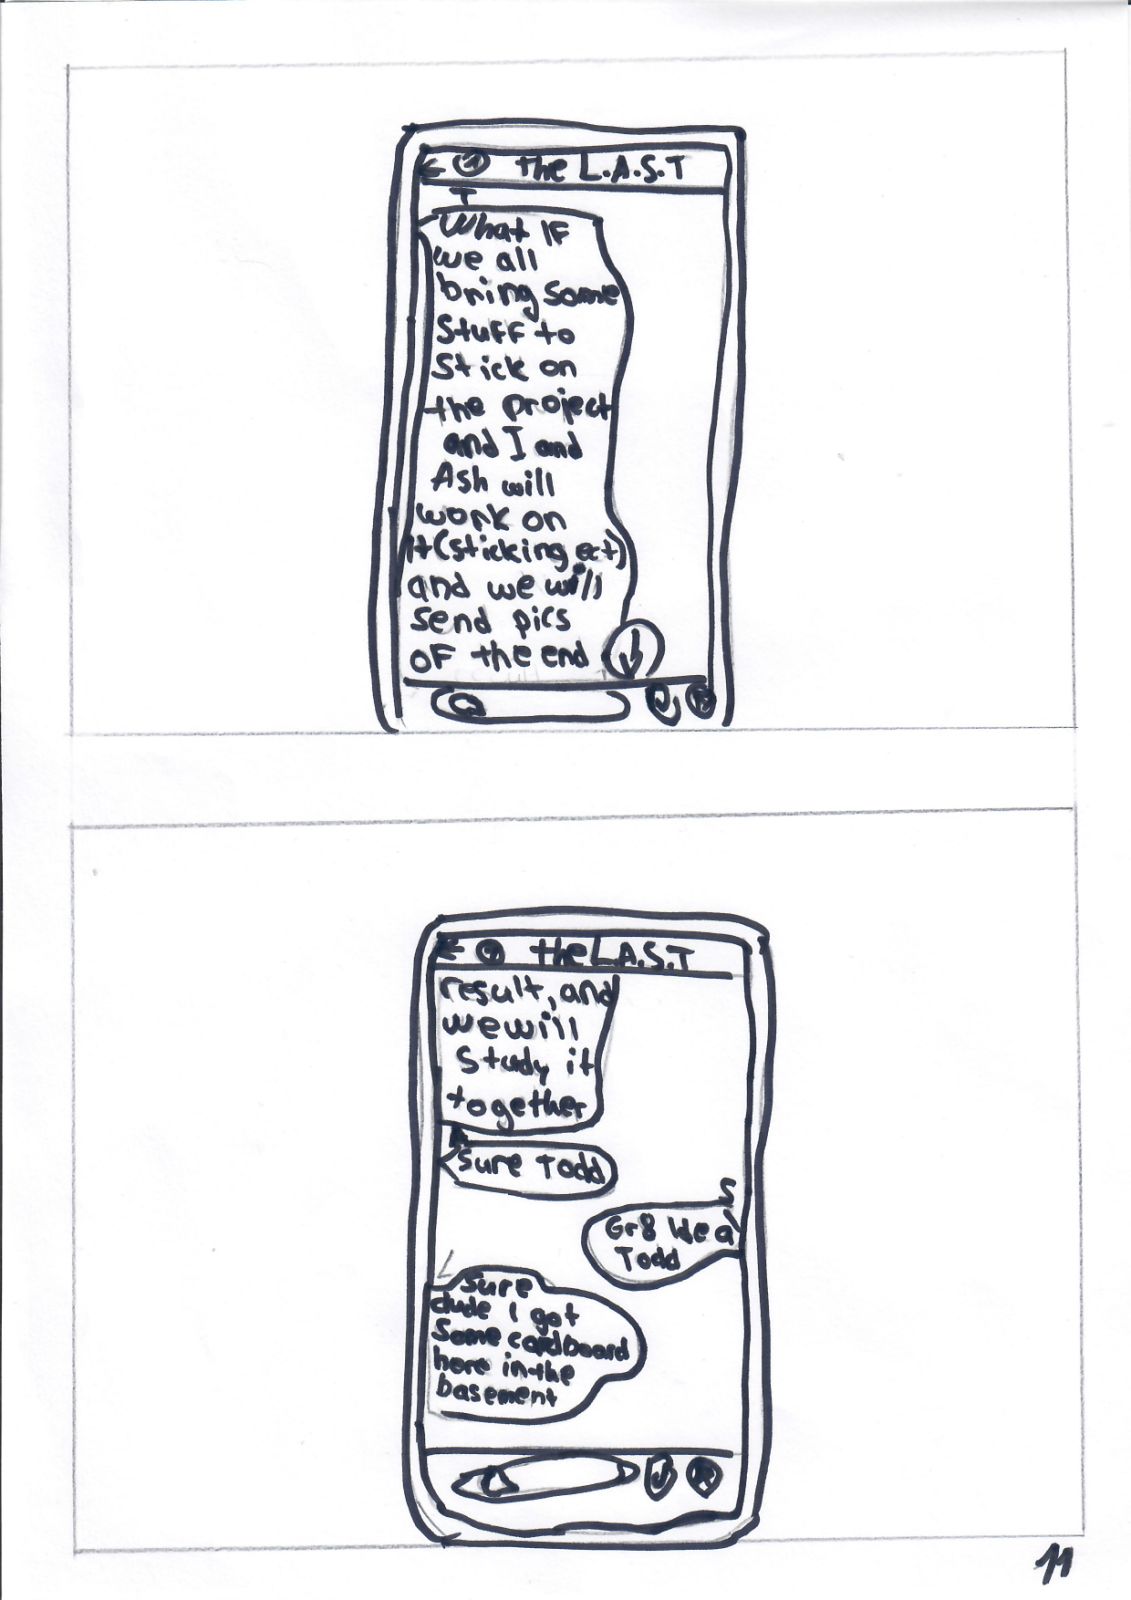 the L.A.S.T
T
What if
we all
bring some
stuff to
stick on
the project
and I and
Ash will
work on
it(sticking ect)
and we will
send pics
of the end
the L.A.S.T
result, and
we will
study it
together
A
Sure Todd
S
Gr8 idea
Todd
L
Sure
dude I got
some cardboard
here in the
basement
11